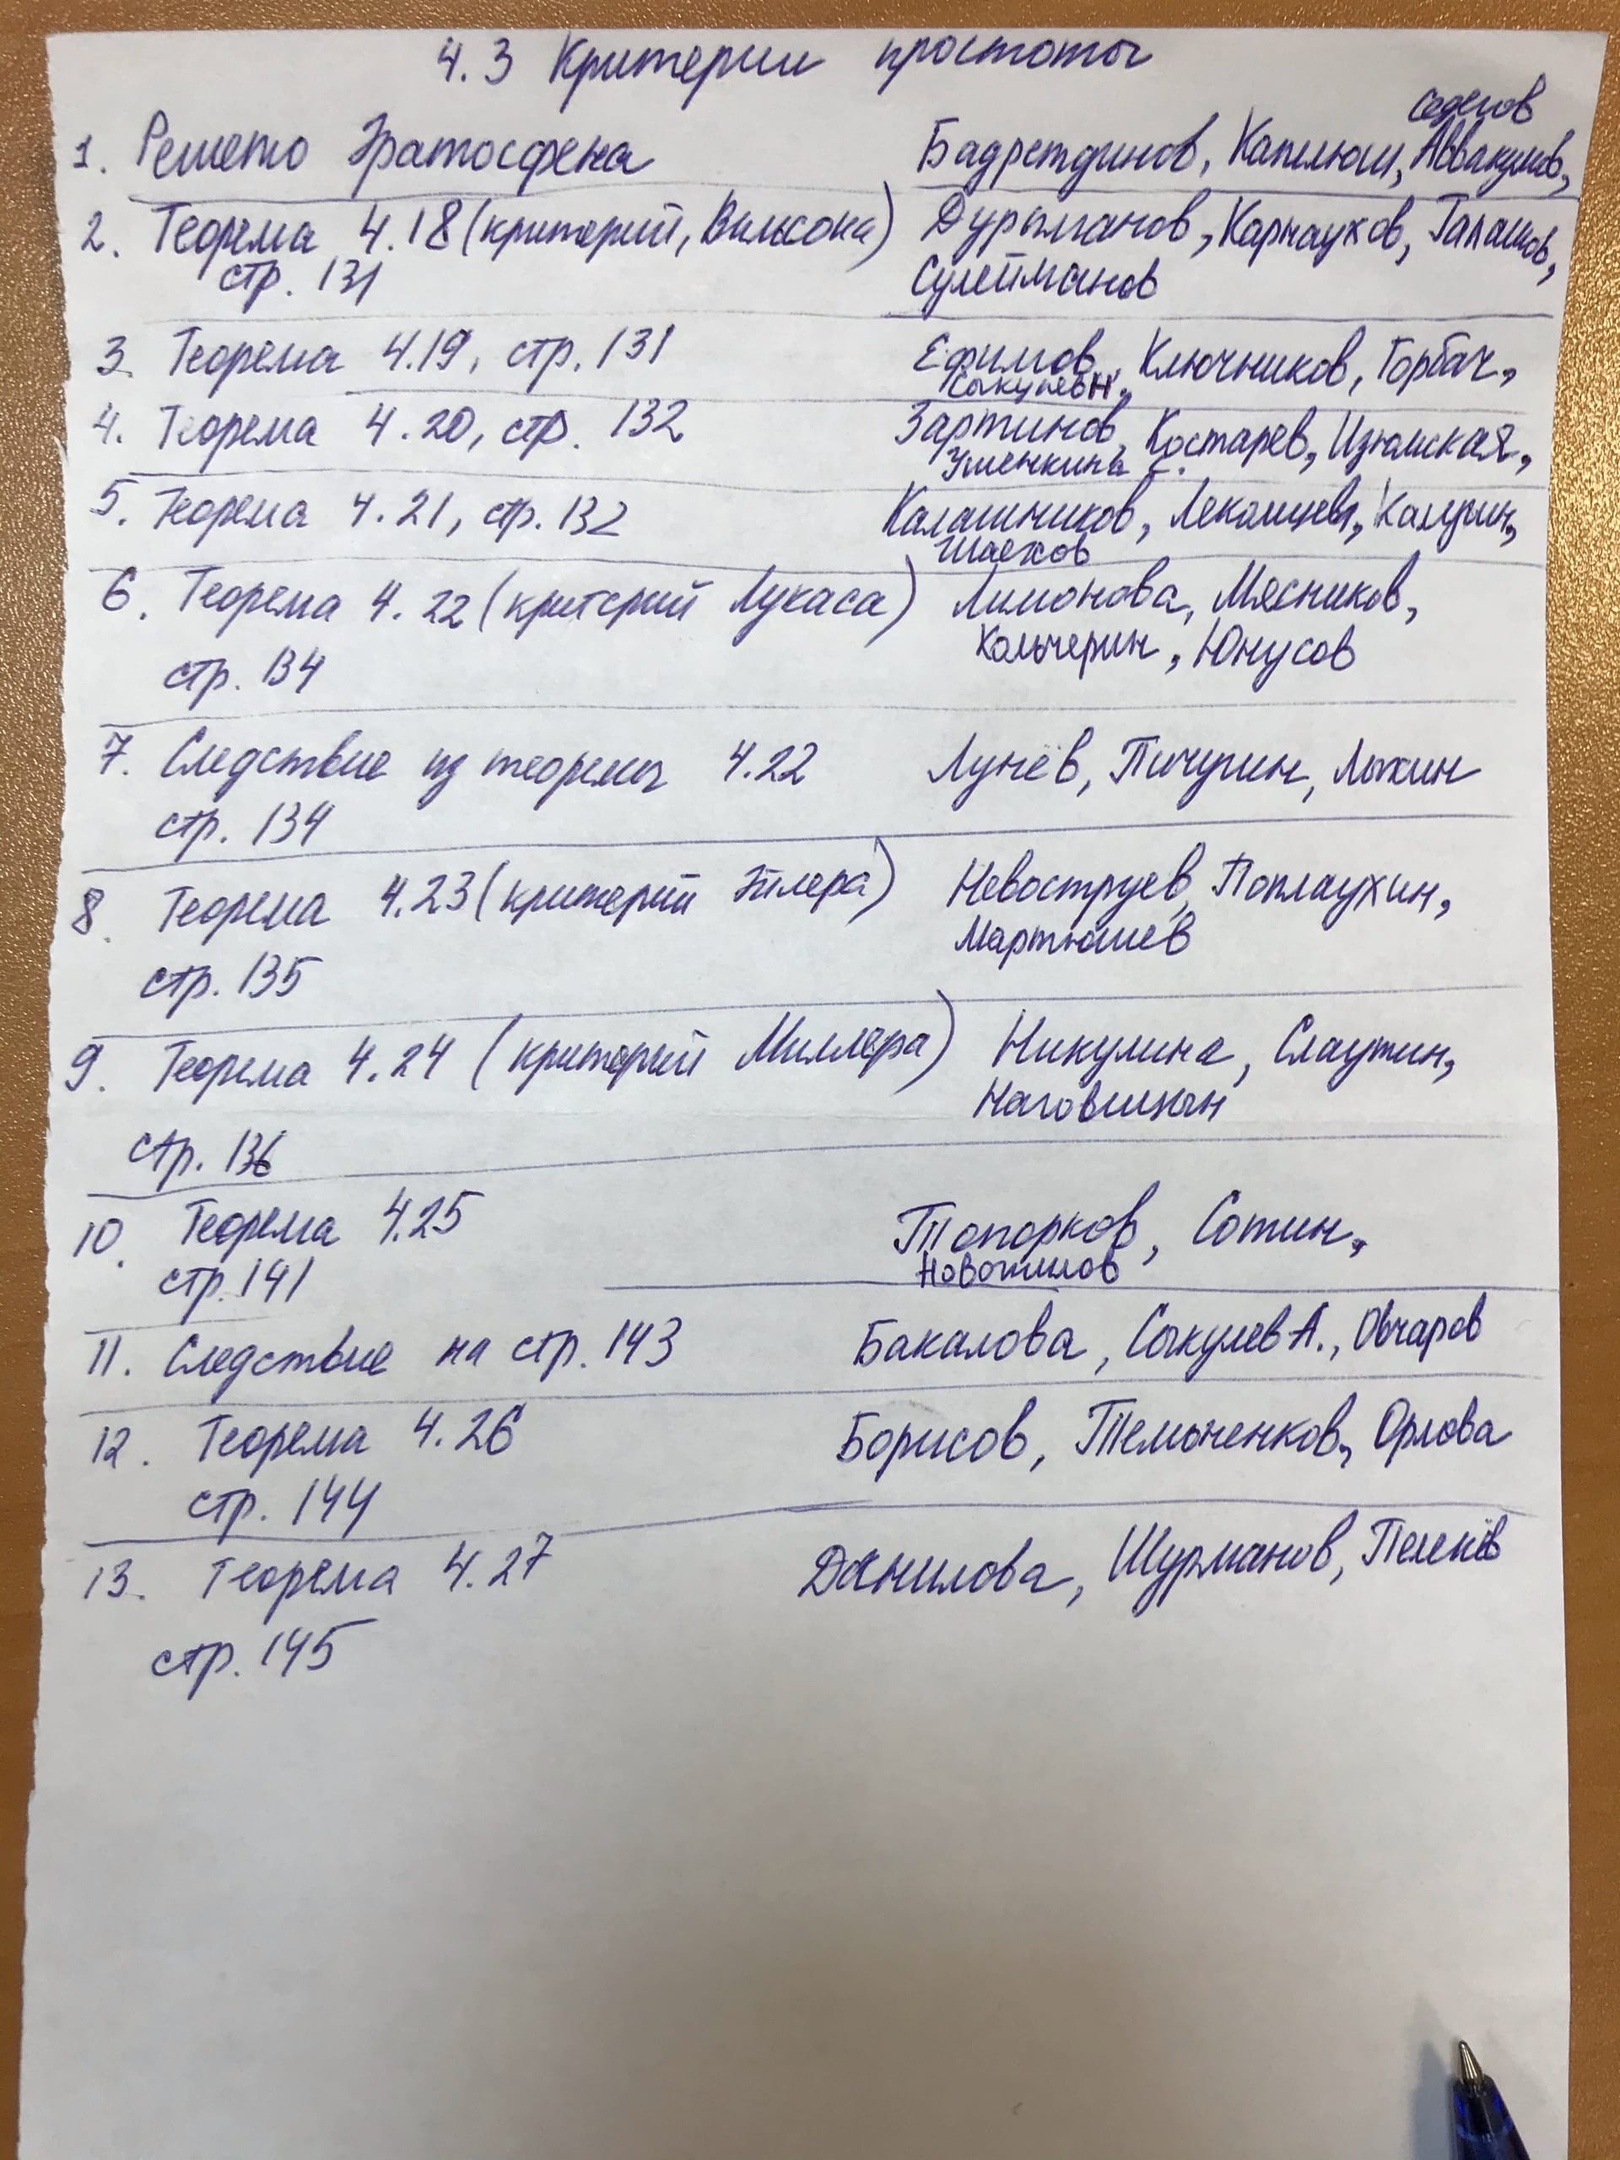 4.3 Критерии простоты
Седегов
1. Решето Эратосфена Бадретдинов, Капилюш, Аввакумов,
2. Теорема 4.18 (критерий, Вильсона) Дурыманов, Карнаухов, Галашов,
стр. 131 Сулейманов
3. Теорема 4.19, стр. 131 Ефимов, Ключников, Горбач,
Сыкулев Н.
4. Теорема 4.20, стр. 132 Зартинов, Костарев, Изюмская,
Ушенкина С.
5. Теорема 4.21, стр. 132 Калашников, Лекомцев, Камрын,
Шаехов
6. Теорема 4.22 (критерий Лукаса) Лимонова, Мясников,
стр. 134 Кольчерин, Юнусов
7. Следствие из теоремы 4.22 Лунёв, Пичугин, Лыхин
стр. 134
8. Теорема 4.23 (критерий Эйлера) Невоструев, Поплаухин,
стр. 135 Мартюшев
9. Теорема 4.24 (критерий Миллера) Никулина, Слаутин,
Наговицын
стр. 136
10. Теорема 4.25 Топорков, Сотин,
стр. 141 Новожилов
11. Следствие на стр. 143 Бакалова, Сыкулев А., Овчаров
12. Теорема 4.26 Борисов, Темоненков, Орлова
стр. 144
13. Теорема 4.27 Данилова, Шурманов, Пелёнев
стр. 145